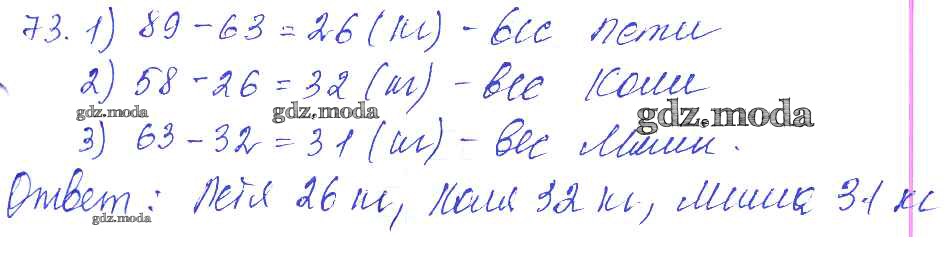 73. 1) 89 - 63 = 26 (кг) - вес Пети
2) 58 - 26 = 32 (кг) - вес Коли
gdz.moda gdz.moda gdz.moda
3) 63 - 32 = 31 (кг) - вес Миши.
Ответ: Петя 26 кг, Коля 32 кг, Миша 31 кг
gdz.moda